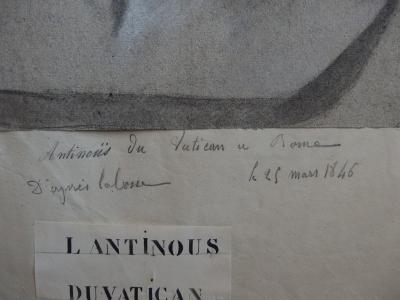 Antinoüs du Vatican a Rome
D'après la bosse le 25 mars 1846
L ANTINOUS
DU VATICAN